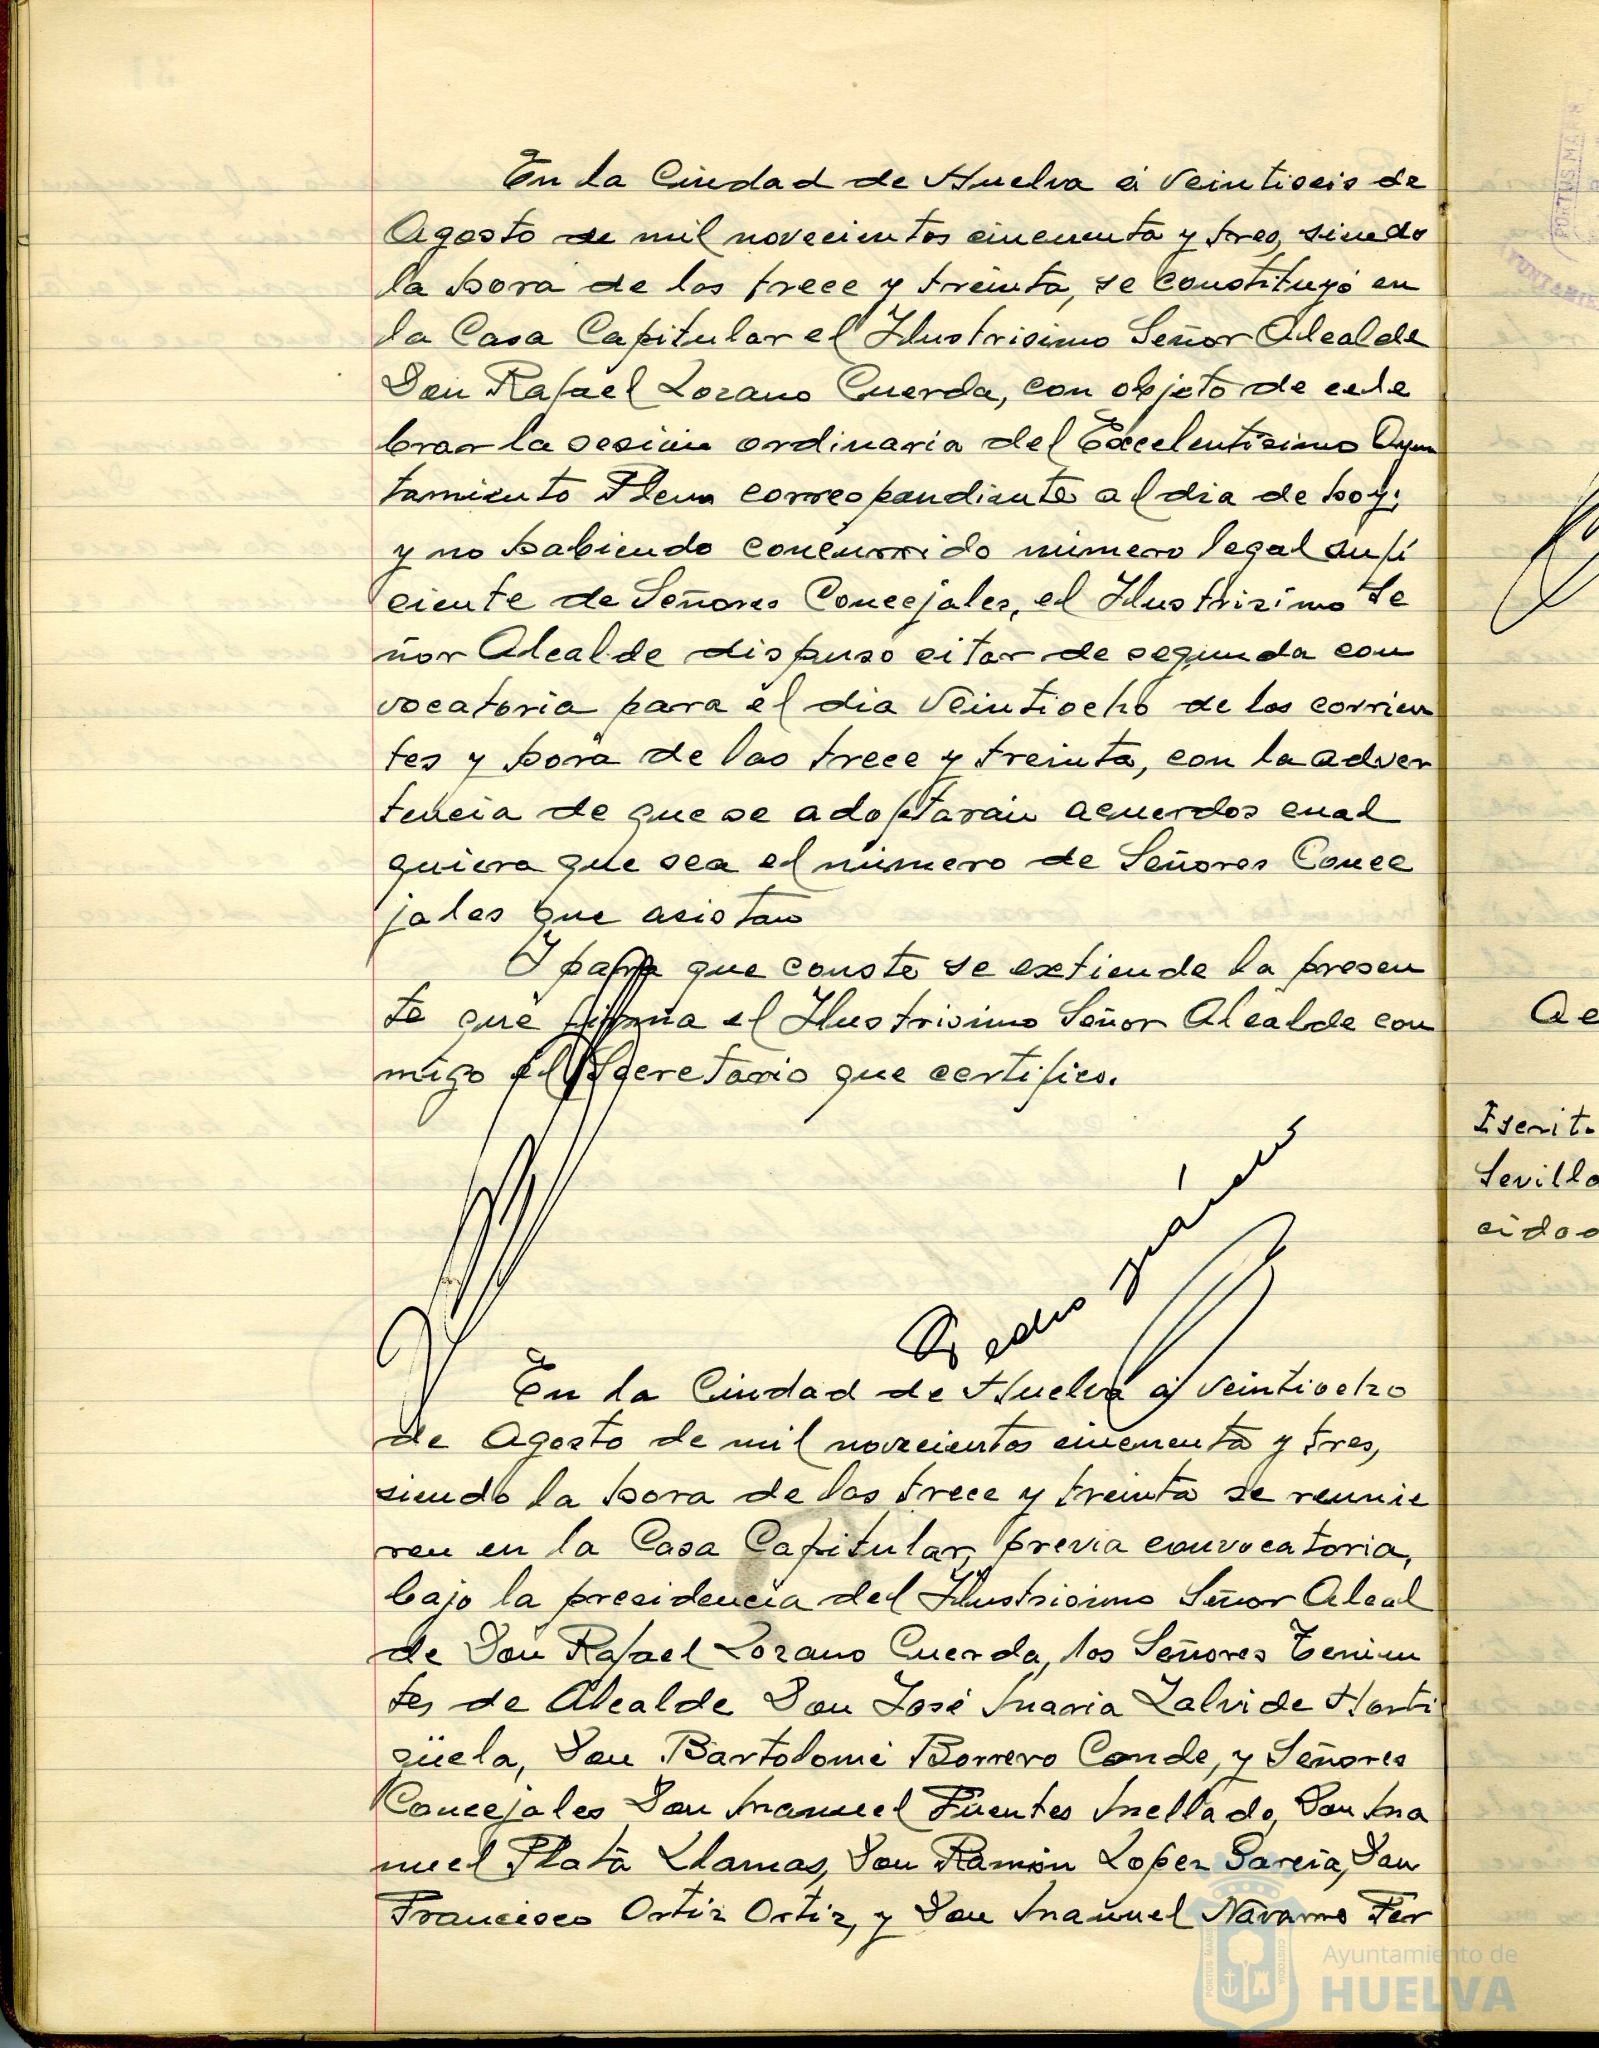 En la Ciudad de Huelva á veintiseis de
Agosto de mil novecientos cincuenta y tres, siendo
la hora de las trece y treinta, se constituyó en
la Casa Capitular el Ilustrisimo Señor Alcalde
Don Rafael Lozano Cuerda, con objeto de cele
brar la sesión ordinaria del Excelentisimo Ayun
tamiento Pleno correspondiente al dia de hoy;
y no habiendo concurrido número legal sufi
ciente de Señores Concejales, el Ilustrisimo Se
ñor Alcalde dispuso citar de segunda con
vocatoria para el dia veintiocho de los corrien
tes y hora de las trece y treinta, con la adver
tencia de que se adoptarán acuerdos cual
quiera que sea el número de Señores Conce
jales que asistan
Y para que conste se extiende la presen
te que firma el Ilustrisimo Señor Alcalde con
migo el Secretario que certifico.
Pedro
En la Ciudad de Huelva á veintiocho
de Agosto de mil novecientos cincuenta y tres,
siendo la hora de las trece y treinta se reunie
ron en la Casa Capitular, previa convocatoria,
bajo la presidencia del Ilustrisimo Señor Alcal
de Don Rafael Lozano Cuerda, los Señores Tenien
tes de Alcalde Don José Maria Zalvide Horti
güela, Don Bartolomé Borrero Conde, y Señores
Concejales Don Manuel Fuentes Mellado, Don Ma
nuel Plata Llamas, Don Ramón Lopez Garcia, Don
Francisco Ortiz Ortiz, y Don Manuel Navarro Fer
Ae
Escrit.
Sevilla
cidos
PORTUS MA
Ayuntamiento de
HUELVA